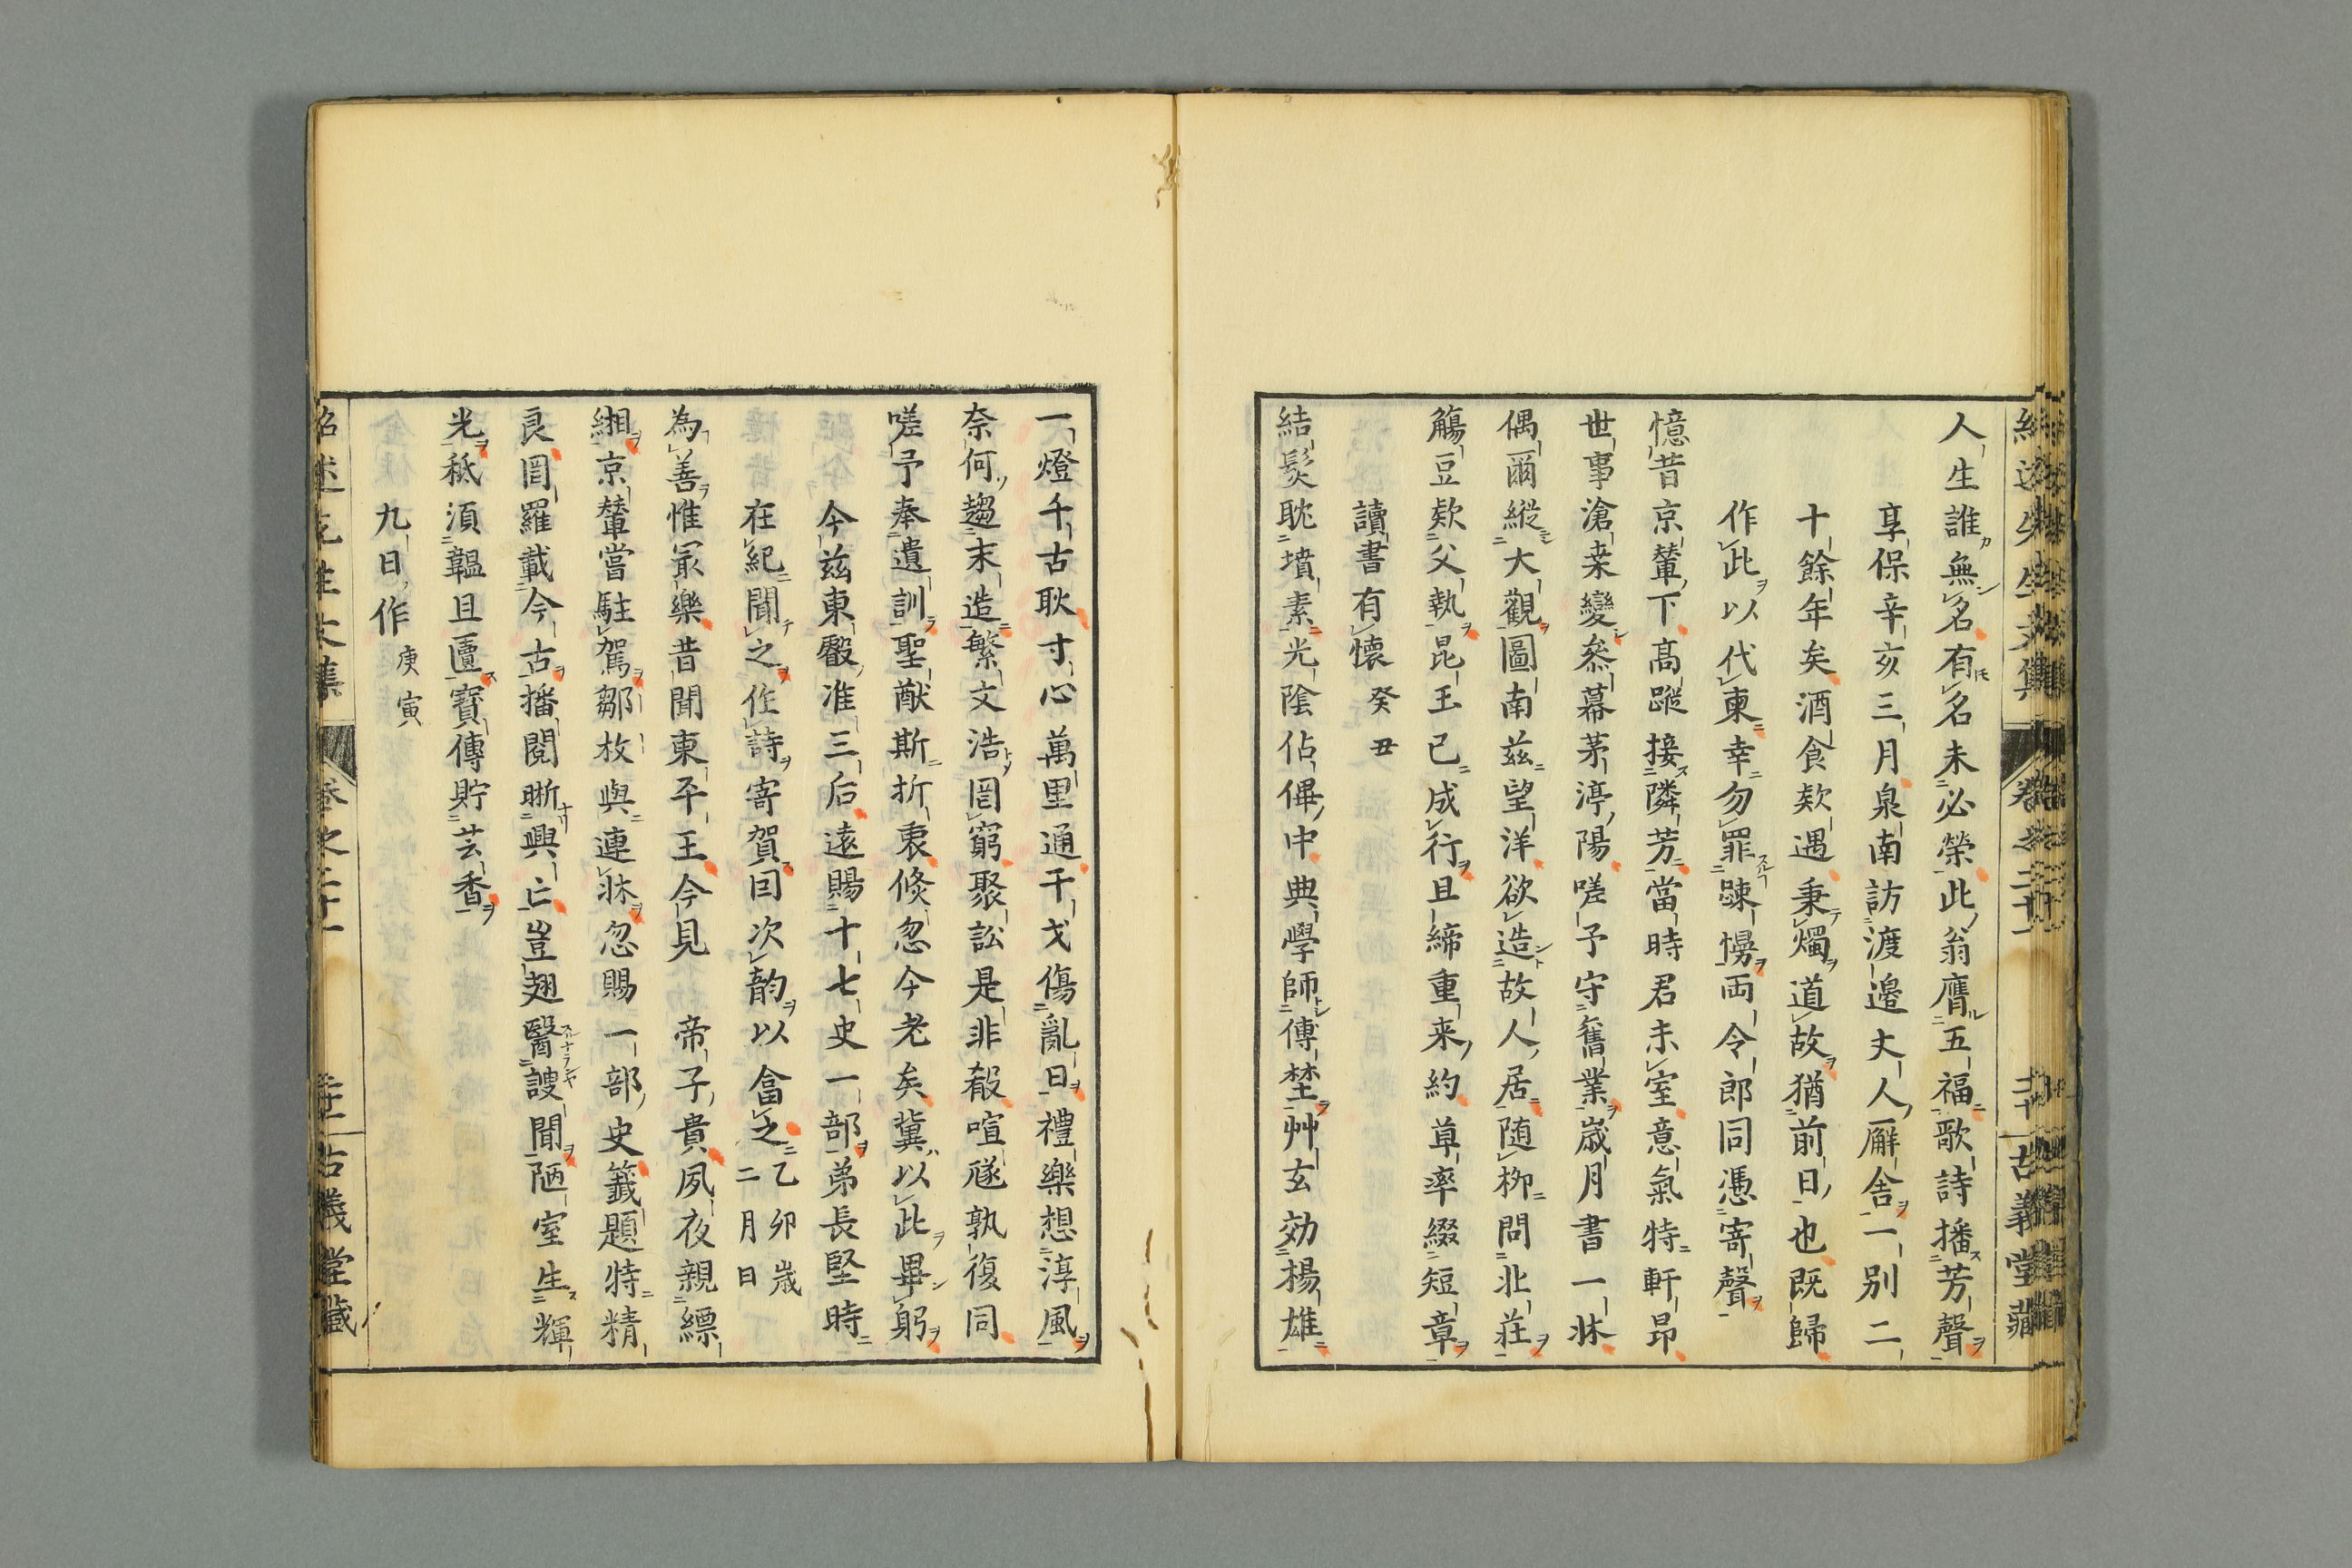 人生誰無名有名未必榮此翁膺五福歌詩播芳聲
享保辛亥三月泉南訪渡邉丈人廨舎一別二
十餘年矣酒食欵遇秉燭道故猶前日也既歸
作此以代柬幸勿罪踈慢両令郎同憑寄聲
憶昔京輦下髙蹤接隣芳當時君未室意氣特軒昂
世事滄桒變叅幕茅渟陽嗟予守舊業歳月書一牀
偶爾縱大觀圖南兹望洋欲造故人居随柳問北荘
觴豆欵父執昆玉已成行且締重来約草率綴短章
讀書有懐 癸丑
結髪耽墳素光陰佔俾中典學師傅埜艸玄効楊雄
一燈千古耿寸心萬里通干戈傷亂日禮樂想淳風
奈何趨末造繁文浩罔窮聚訟是非殽喧豗孰復同
嗟予奉遺訓聖猷斯折衷倐忽今老矣冀以此畢躬
今兹東叡准三后遠賜十七史一部弟長堅時
在紀聞之作詩寄賀因次韵以畣之 乙卯歳二月日
為善惟㝡樂昔聞東平王今見 帝子貴夙夜親縹
緗京輦嘗駐駕鄒枚與連牀忽賜一部史籤題特精
良罔羅載今古播閲晰興亡豈翅醫謏聞陋室生輝
光秪須韞且匵寳傳貯芸香
九日作 庚寅
紹述先生文集 卷之二十一 古義堂藏